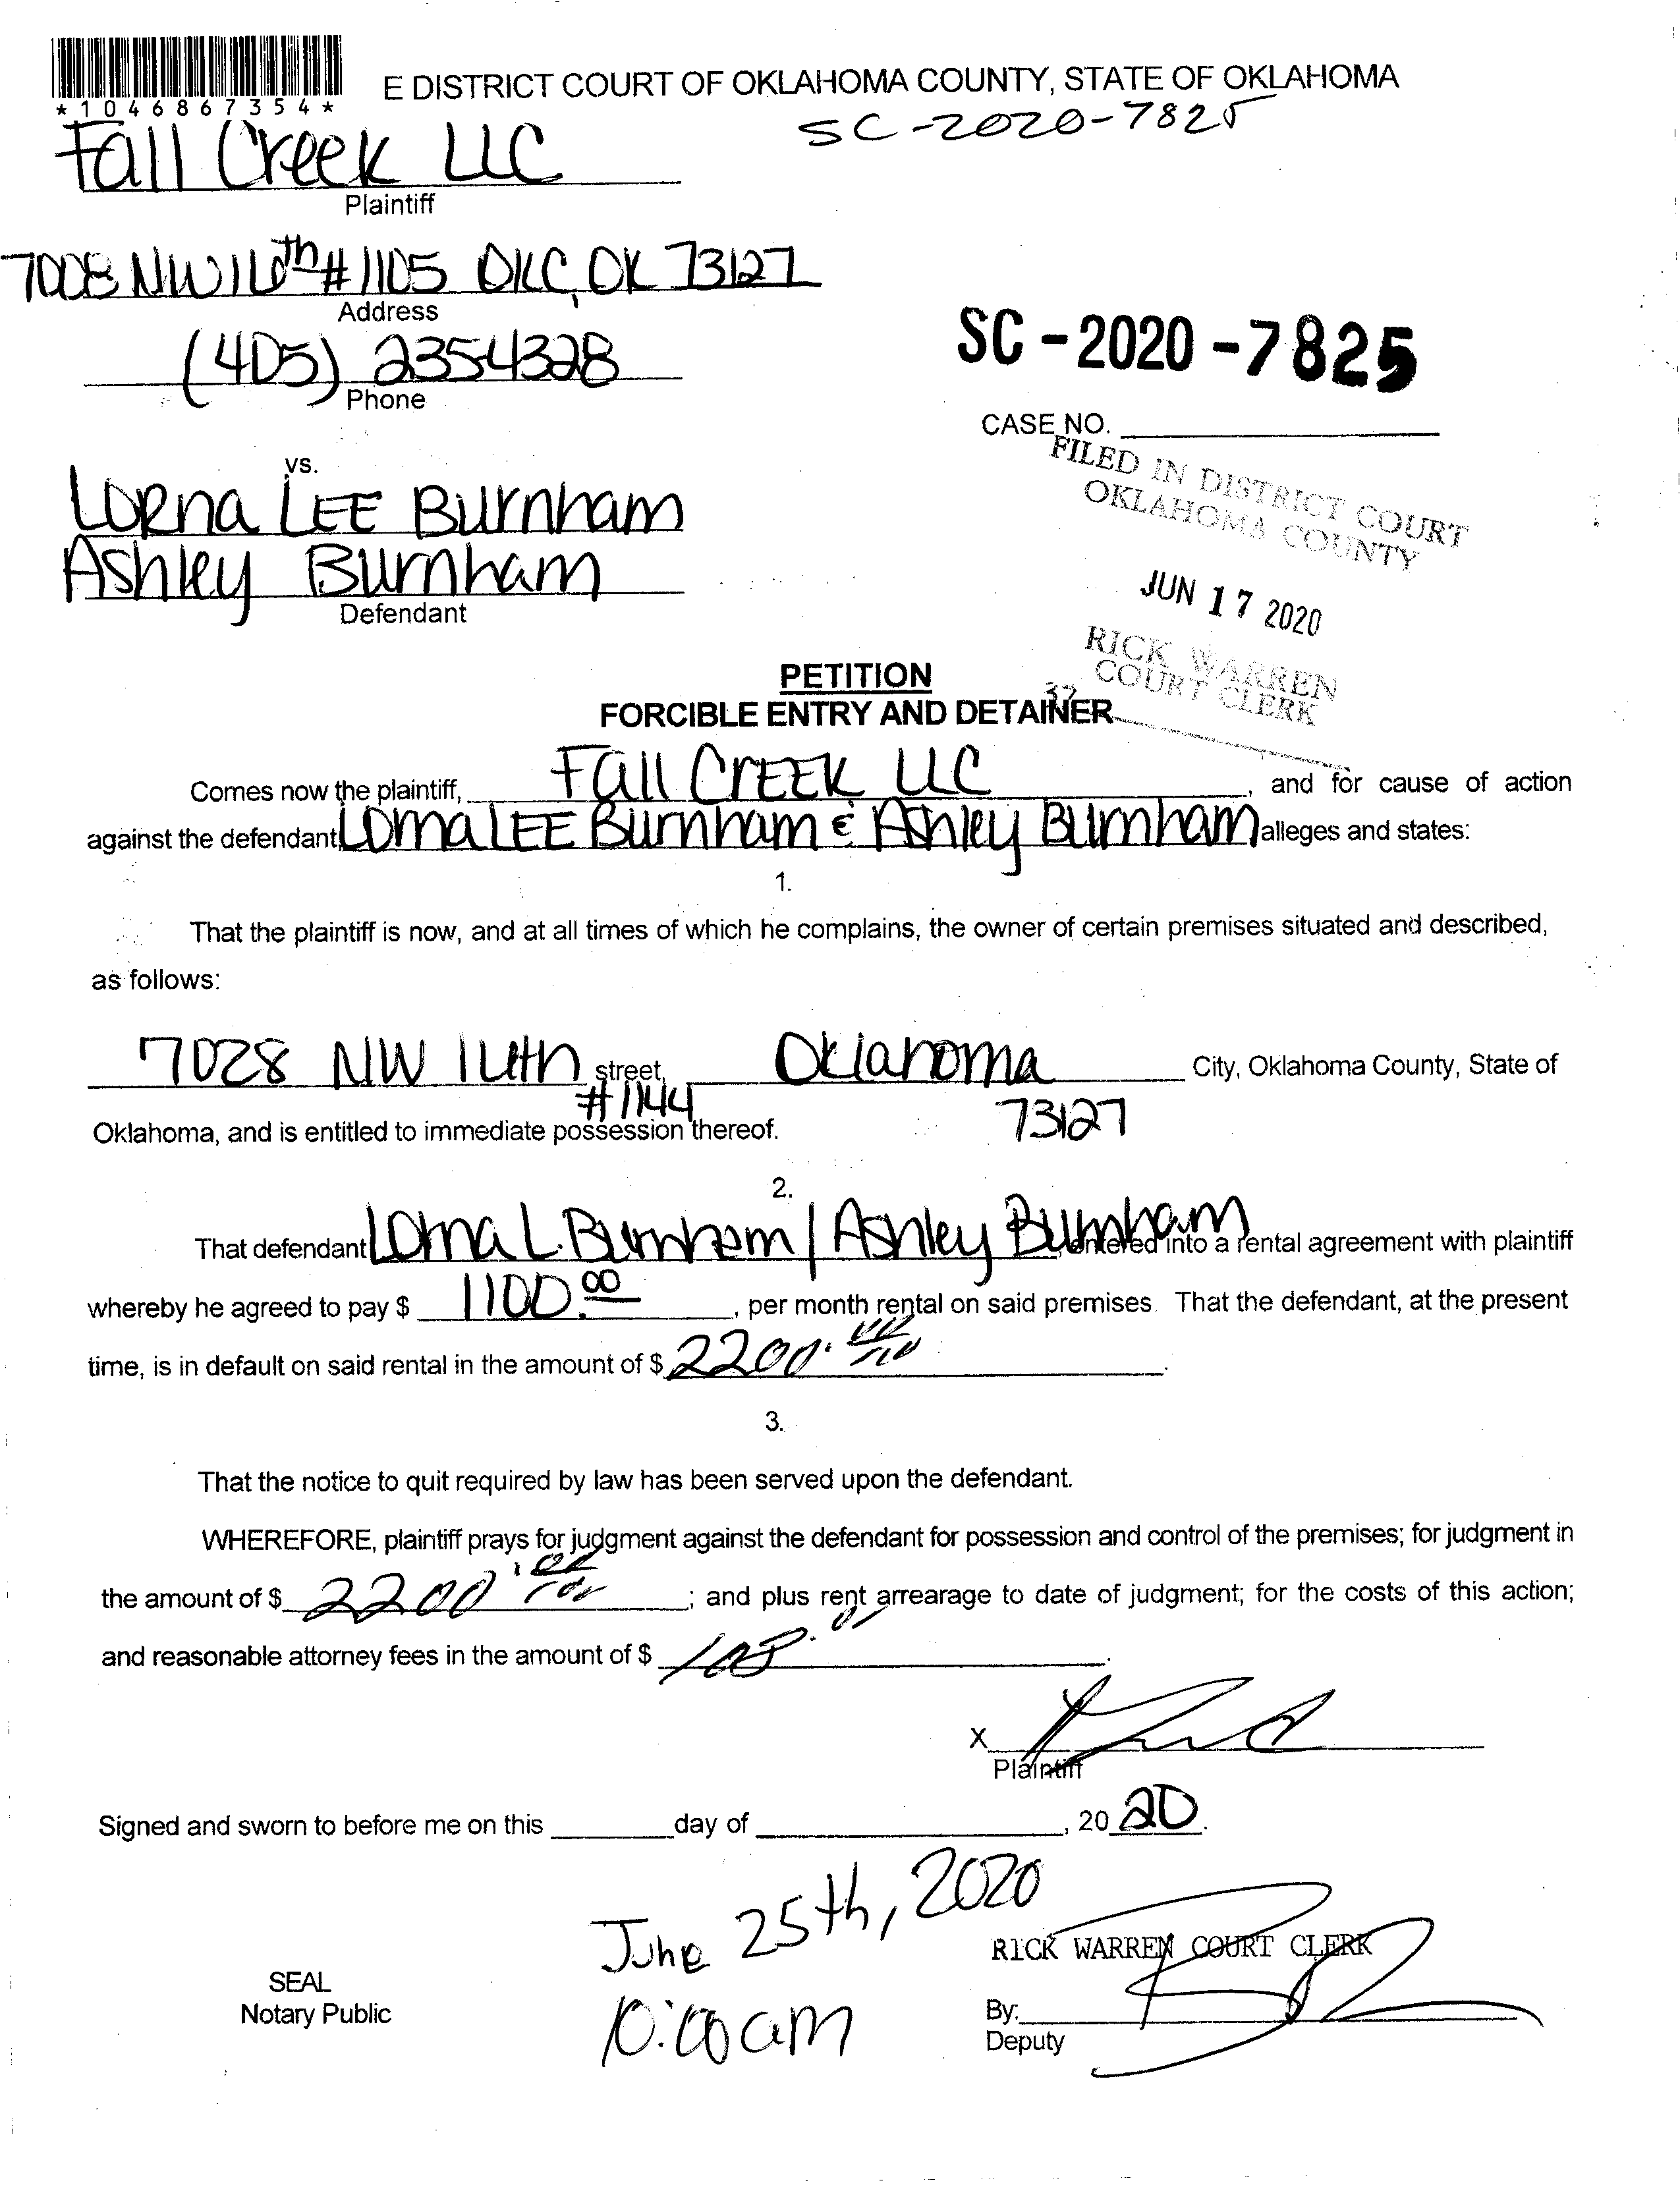 *1046867354*
E DISTRICT COURT OF OKLAHOMA COUNTY, STATE OF OKLAHOMA
SC-2020-7825
Fall Creek LLC
Plaintiff
7008 NW 16th #1105 OKC, OK 73127
Address
(405) 2354328
Phone
SC-2020-7825
CASE NO.
FILED IN DISTRICT COURT
OKLAHOMA COUNTY
JUN 17 2020
RICK WARREN
COURT CLERK
37
vs.
Lorna LEE Burnham
Ashley Burnham
Defendant
PETITION
FORCIBLE ENTRY AND DETAINER
Comes now the plaintiff, Fall CrEEK LLC, and for cause of action
against the defendant, Lorna LEE Burnham & Ashley Burnham alleges and states:
1.
That the plaintiff is now, and at all times of which he complains, the owner of certain premises situated and described,
as follows:
7028 NW 16th street, Oklahoma City, Oklahoma County, State of
#1144 73127
Oklahoma, and is entitled to immediate possession thereof.
2.
That defendant Lorna L. Burnham / Ashley Burnham, entered into a rental agreement with plaintiff
whereby he agreed to pay $ 1100.00, per month rental on said premises. That the defendant, at the present
time, is in default on said rental in the amount of $ 2200.
3.
That the notice to quit required by law has been served upon the defendant.
WHEREFORE, plaintiff prays for judgment against the defendant for possession and control of the premises; for judgment in
the amount of $ 2200; and plus rent arrearage to date of judgment; for the costs of this action;
and reasonable attorney fees in the amount of $
X
Plaintiff
Signed and sworn to before me on this day of , 20 20.
June 25th, 2020
10:00 am
RICK WARREN COURT CLERK
SEAL
Notary Public
By:
Deputy